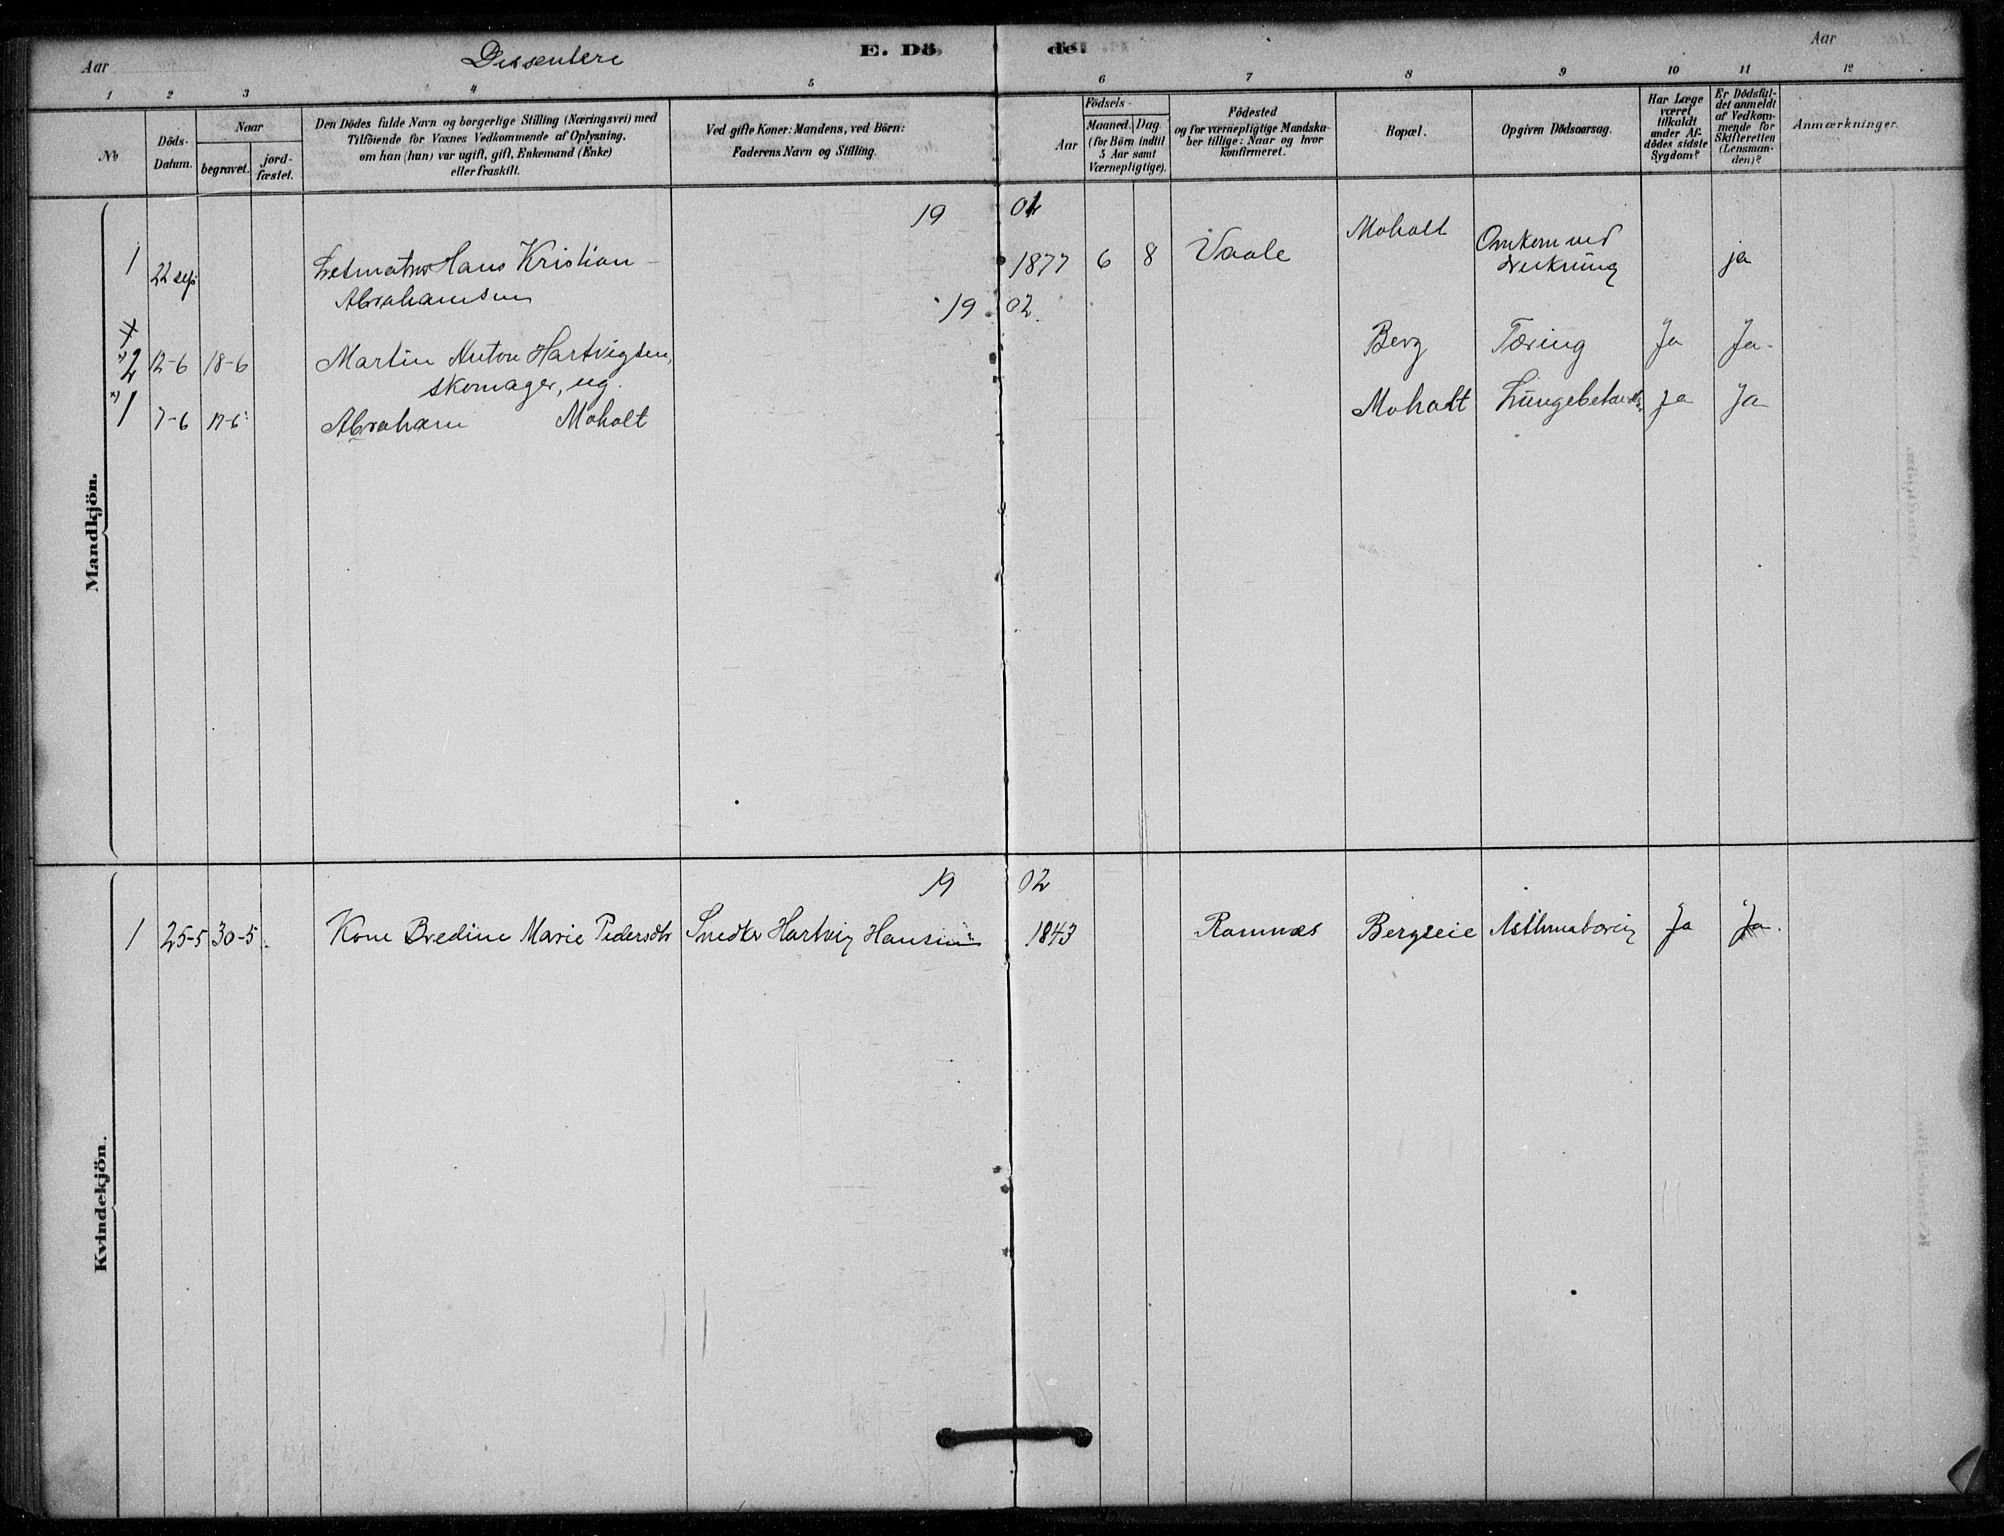 Aar
Dissentere
E. Döde.
Aar
1 2 3 4 5 6 7 8 9 10 11 12
No
Döds-
Datum.
Naar
begravet.
jord-
fæstet.
Den Dödes fulde Navn og borgerlige Stilling (Næringsvei) med
Tilföiende for Voxnes Vedkommende af Oplysning,
om han (hun) var ugift, gift, Enkemand (Enke)
eller fraskilt.
Ved gifte Koner: Mandens, ved Börn:
Faderens Navn og Stilling.
Födsels-
Aar
Maaned.
Dag
(for Börn indtil
5 Aar samt
Værnepligtige).
Födested
og for værnepligtige Mandska-
ber tillige: Naar og hvor
konfirmeret.
Bopæl.
Opgiven Dödsaarsag.
Har Læge
været
tilkaldt
under Af-
dödes sidste
Sygdom?
Er Dödsfal-
det anmeldt
af Vedkom-
mende for
Skifteretten
(Lensman-
den)?
Anmærkninger.
Mandkjön.
19 01
1 22 sep Hans Kristian 1877 6 8 Vaale Moholt Omkom ved
Abrahamsen drukning ja
19 02
2 12-6 18-6 Martin Anton Hartvigsen, Berg Tæring Ja Ja
skomager, ug.
1 7-6 17-6 Abraham Moholt Moholt Ja Ja
Kvindekjön.
19 02
1 25-5 30-5 Kone Bredine Marie Pedersdtr Snedker Hartvig Hansen 1843 Ramnæs Bergseie Ja Ja